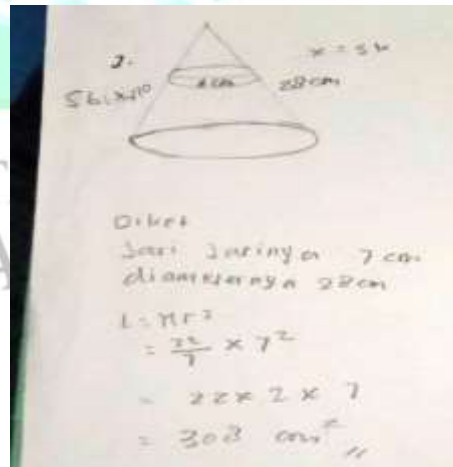 2.
28 cm
Diket
Jari Jarinya 7 cm
diameternya 28cm
L = πr²
= 22/7 × 7²
= 22 × 2 × 7
= 308 cm² //